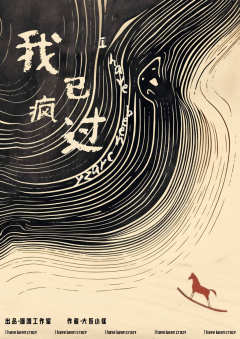 我
已
疯
过
I have been crazy
出品 工作室 作者
I have been crazy I have been crazy I have been crazy I have been crazy I have been crazy